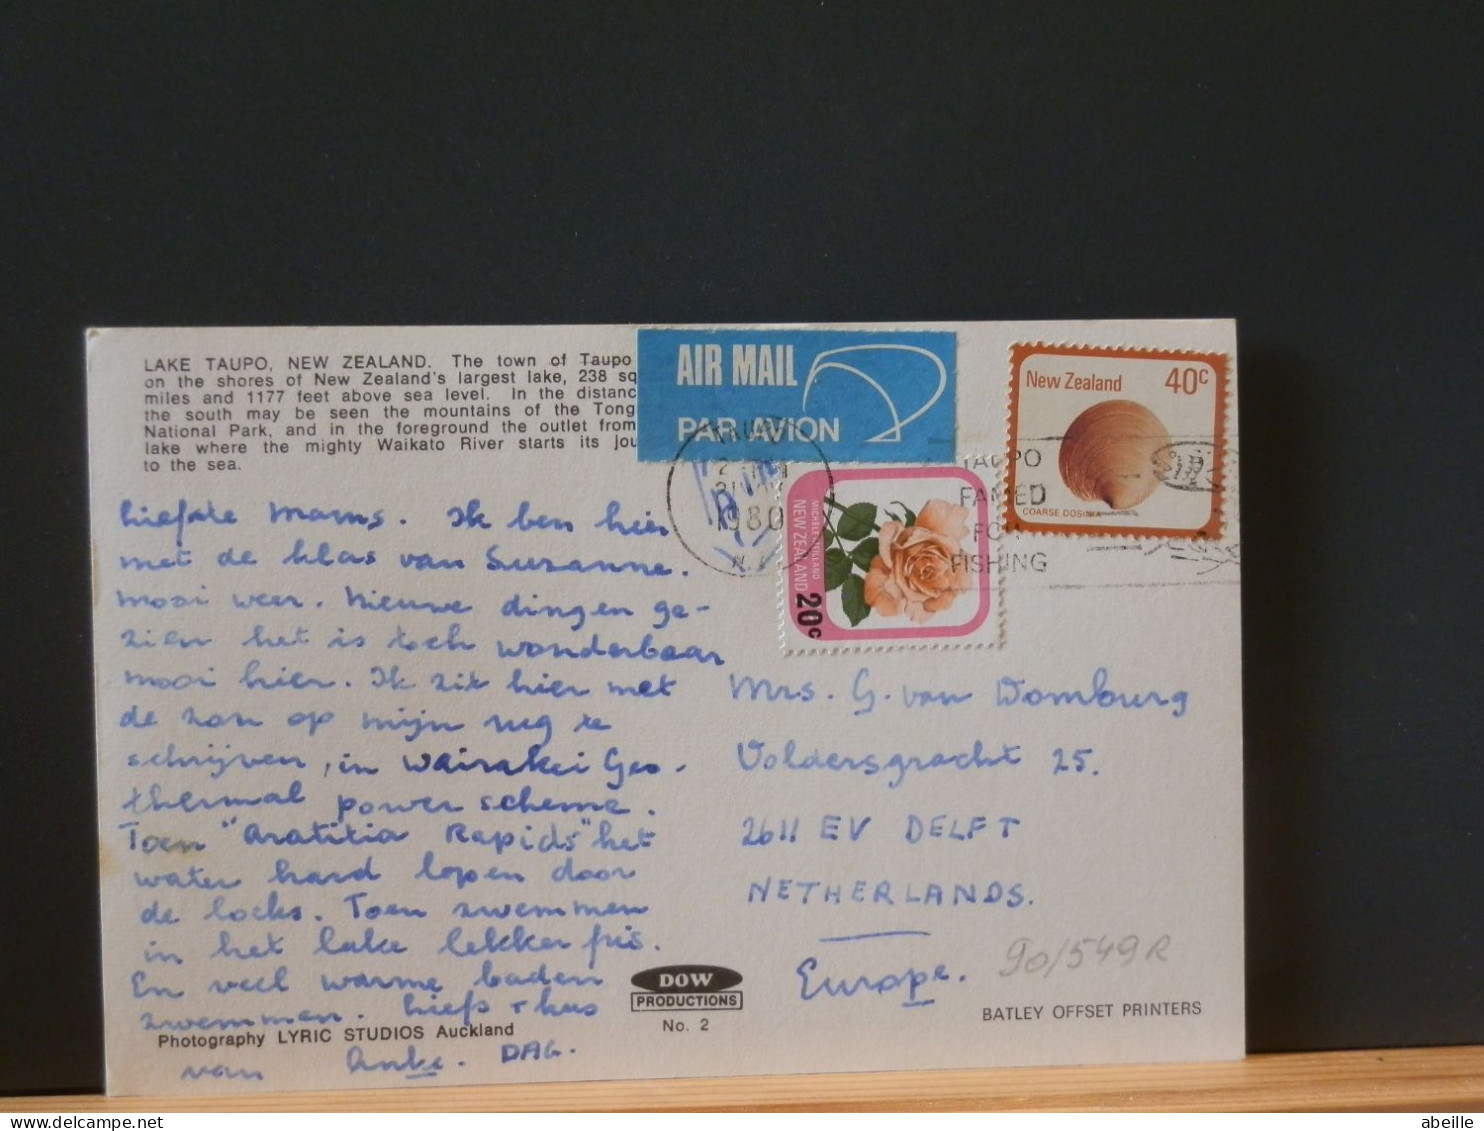 LAKE TAUPO, NEW ZEALAND. The town of Taupo
on the shores of New Zealand's largest lake, 238 sq
miles and 1177 feet above sea level. In the distanc
the south may be seen the mountains of the Tong
National Park, and in the foreground the outlet from
lake where the mighty Waikato River starts its jou
to the sea.
AIR MAIL
PAR AVION
New Zealand 40c
COARSE DOSINIA
1980
TAUPO
FAMED
FOR
FISHING
NEW ZEALAND
20c
liefste Mams. Ik ben hier
met de klas van Suzanne.
mooi weer. Nieuwe dingen ge-
zien het is toch wonderbaar
mooi hier. Ik zit hier met
de zon op mijn rug te
schrijven, in Wairakei Geo-
thermal power scheme.
Toen "Aratitia Rapids" het
water hard lopen door
de locks. Toen zwemmen
in het lake lekker fris.
En veel warme baden
zwemmen. liefs + kus
van Anke. DAG.
Mrs. G. van Domburg
Voldersgracht 25.
2611 EV DELFT
NETHERLANDS.
Europe.
90/549R
DOW
PRODUCTIONS
No. 2
BATLEY OFFSET PRINTERS
Photography LYRIC STUDIOS Auckland
abeille